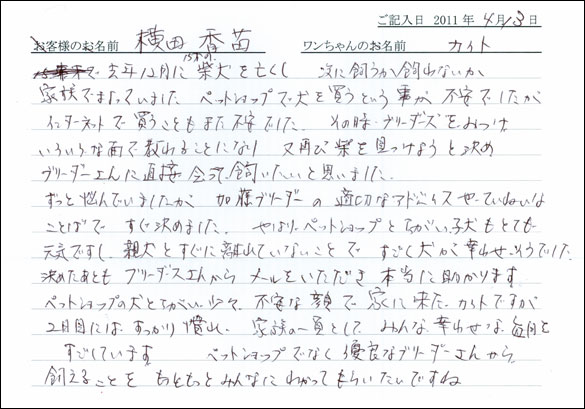 ご記入日 2011年 4月13日
お客様のお名前 横田 香苗 ワンちゃんのお名前 カイト
15才で去年12月に柴犬を亡くし 次に飼うか飼わないか
家族でまよっていました。ペットショップで犬を買うという事が不安でしたが
インターネットで買うこともまた不安でした。その時ブリーダーズをみつけ
いろいろな面で教わることになり 又再び柴を見つけようと決め
ブリーダーさんに直接会って飼いたいと思いました。
ずっと悩んでいましたが 加藤ブリーダーの適切なアドバイスやていねいな
ことばで すぐ決めました。やはりペットショップとちがい、子犬もとても
元気ですし、親犬とすぐに離れていないことで すごく犬が幸せそうでした。
決めたあとも ブリーダーズさんから メールをいただき 本当に助かります
ペットショップの犬とちがい 少々 不安な顔で 家に来た カイトですが
2日目には すっかり慣れ、家族の一員として みんな幸せな毎日を
すごしています ペットショップでなく優良なブリーダーさんから
飼えることを もっともっとみんなに わかってもらいたいですね